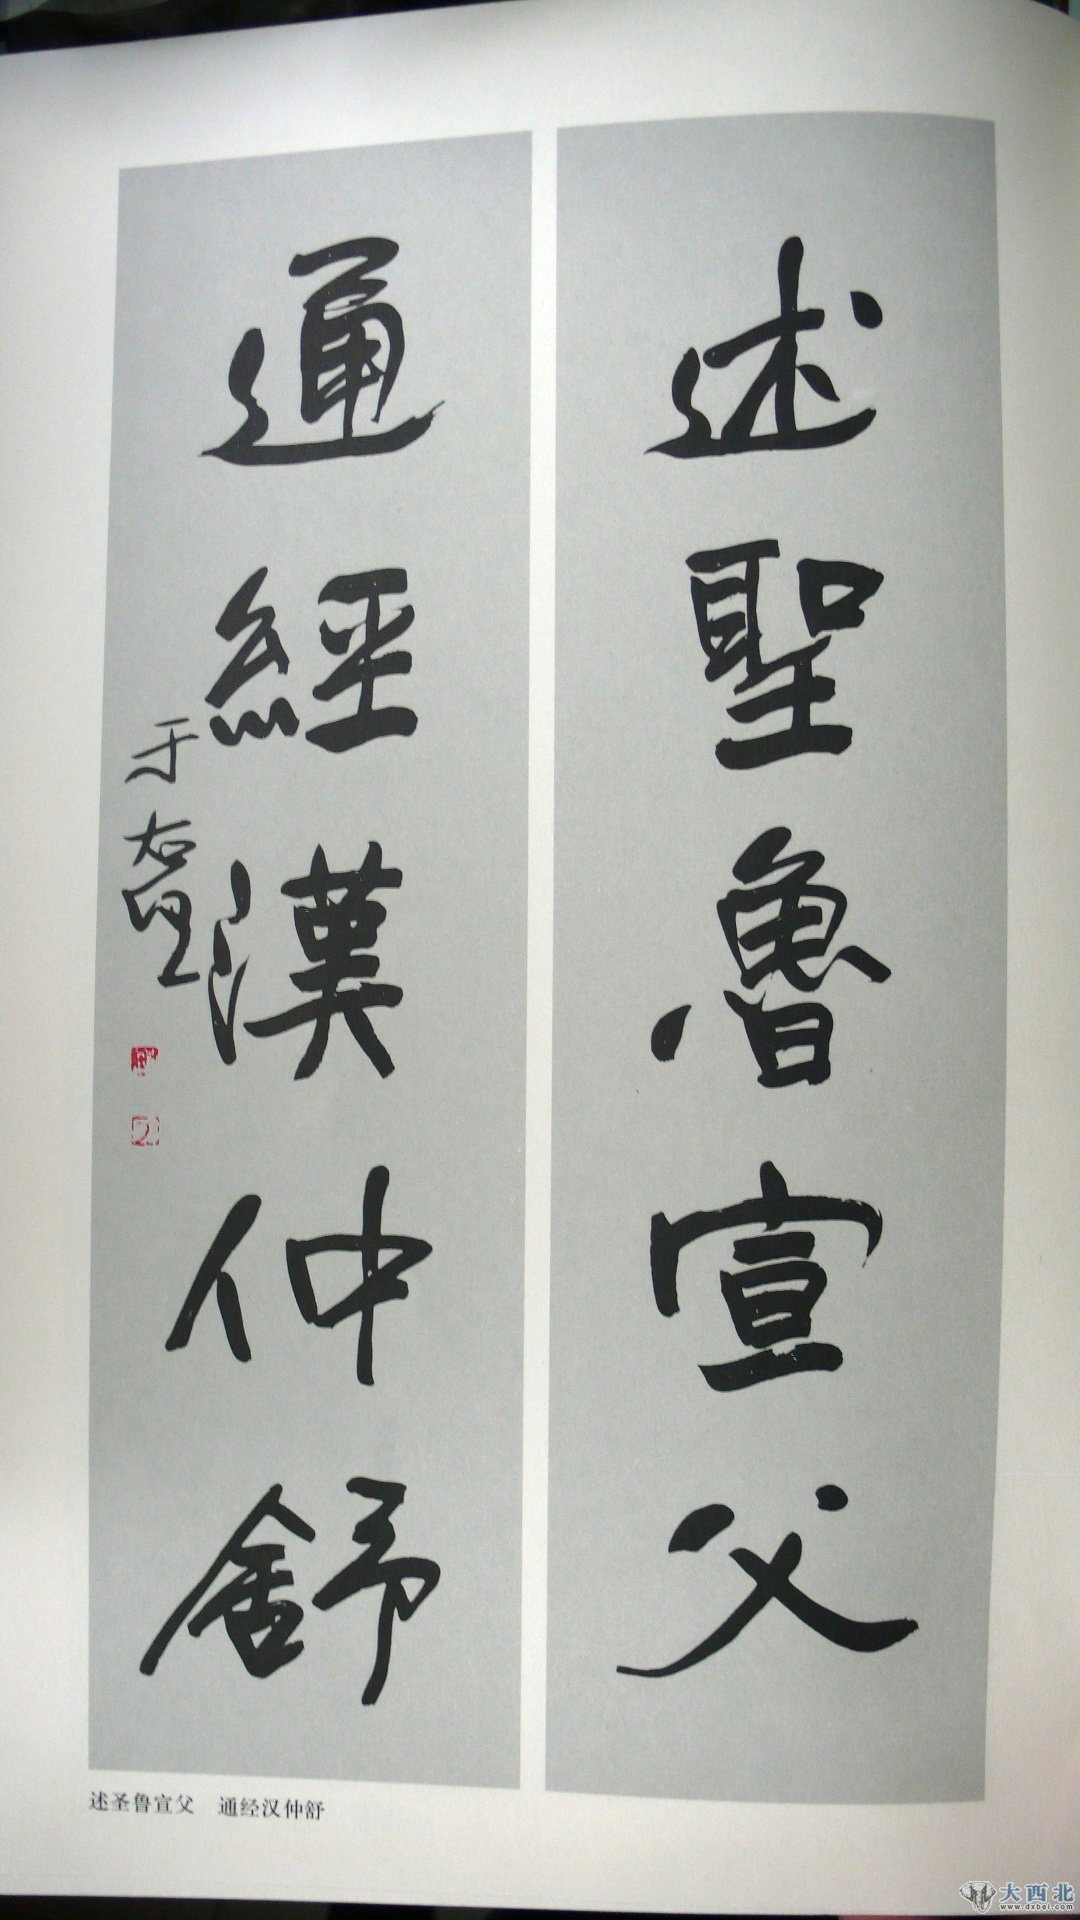 述聖魯宣父
通經漢仲舒
于右任
述圣鲁宣父 通经汉仲舒
大西北
www.dxbei.com